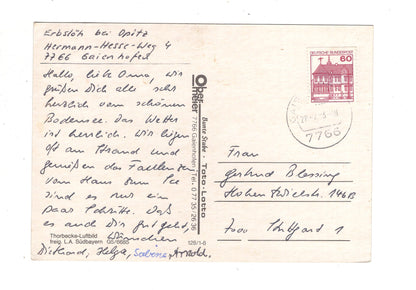 Erbslöh bei Opitz
Hermann-Hesse-Weg 4
7766 Gaienhofen
Hallo, liebe Omma, wir
grüßen Dich alle sehr
herzlich vom schönen
Bodensee. Das Wetter
ist herrlich. Wir liegen
oft am Strand und
genießen das Faulenzen
vom Haus zum See
sind es nur ein
paar Schritte. Daß
es auch Dir gut geht,
wünschen
Dickhard, Helga, Sabine, Arnold.
Thorbecke-Luftbild
freig. L.A. Südbayern GS/6665
128/1-6
Obermeier
Bunte Stube · Toto-Lotto
7766 Gaienhofen, Tel. 0 77 35/26 36
DEUTSCHE BUNDESPOST
60
7766
Frau
Gertrud Blessing
Hohentwielstr. 146B
7000 Stuttgart 1